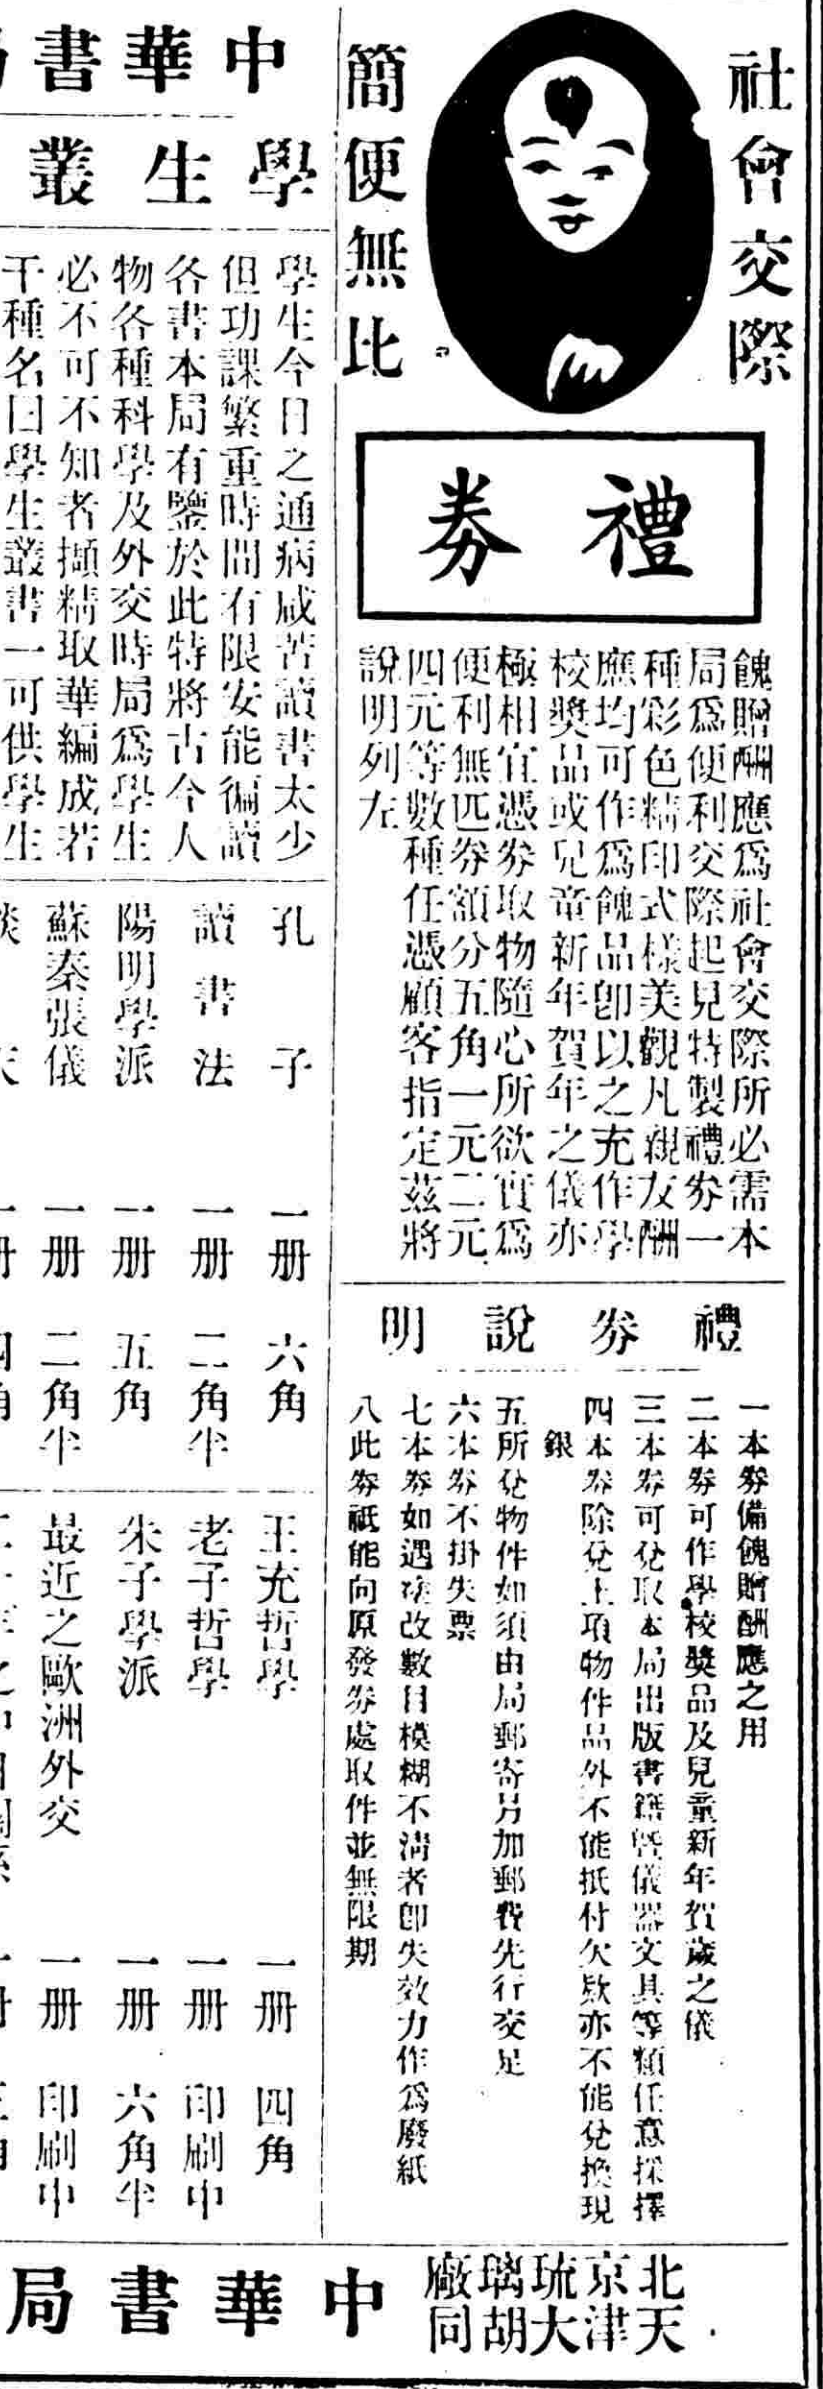 社會交際
簡便無比
禮券
餽贈酬應爲社會交際所必需本
局爲便利交際起見特製禮券一
種彩色精印式樣美觀凡親友酬
應均可作爲餽品卽以之充作學
校奬品或兒童新年賀年之儀亦
極相宜憑券取物隨心所欲實爲
便利無匹券額分五角一元二元
四元等數種任憑顧客指定茲將
說明列左
禮券說明
一本券備餽贈酬應之用
二本券可作學校奬品及兒童新年賀歲之儀
三本券可兌取本局出版書籍曁儀器文具等類任意採擇
四本券除兌上項物件品外不能抵付欠款亦不能兌換現
銀
五所兌物件如須由局郵寄另加郵費先行交足
六本券不掛失票
七本券如遇塗改數目模糊不淸者卽失效力作爲廢紙
八此券祇能向原發券處取件並無限期
中華書局
學生叢
學生今日之通病咸苦讀書太少
但功課繁重時間有限安能徧讀
各書本局有鑒於此特將古今人
物各種科學及外交時局爲學生
必不可不知者擷精取華編成若
干種名曰學生叢書一可供學生
孔子 一册 六角
讀書法 一册 二角半
陽明學派 一册 五角
蘇秦張儀 一册 二角半
王充哲學 一册 四角
老子哲學 一册 印刷中
朱子學派 一册 六角半
最近之歐洲外交 一册 印刷中
北京琉璃廠
天津大胡同
中華書局